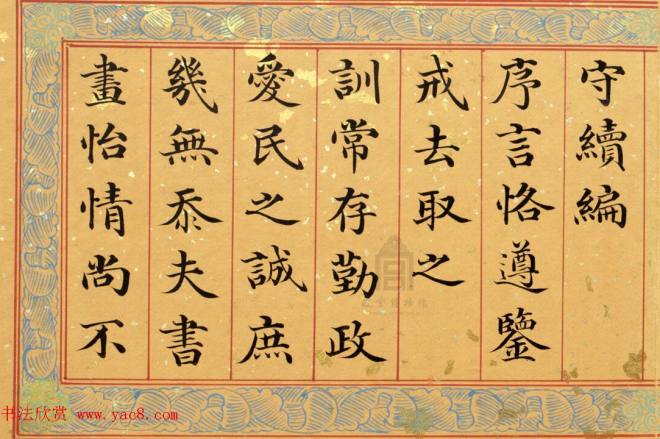 守續編
序言恪遵鑒
戒去取之
訓常存勤政
愛民之誠庶
幾無忝夫書
畫怡情尚不
书法欣赏 www.yac8.com